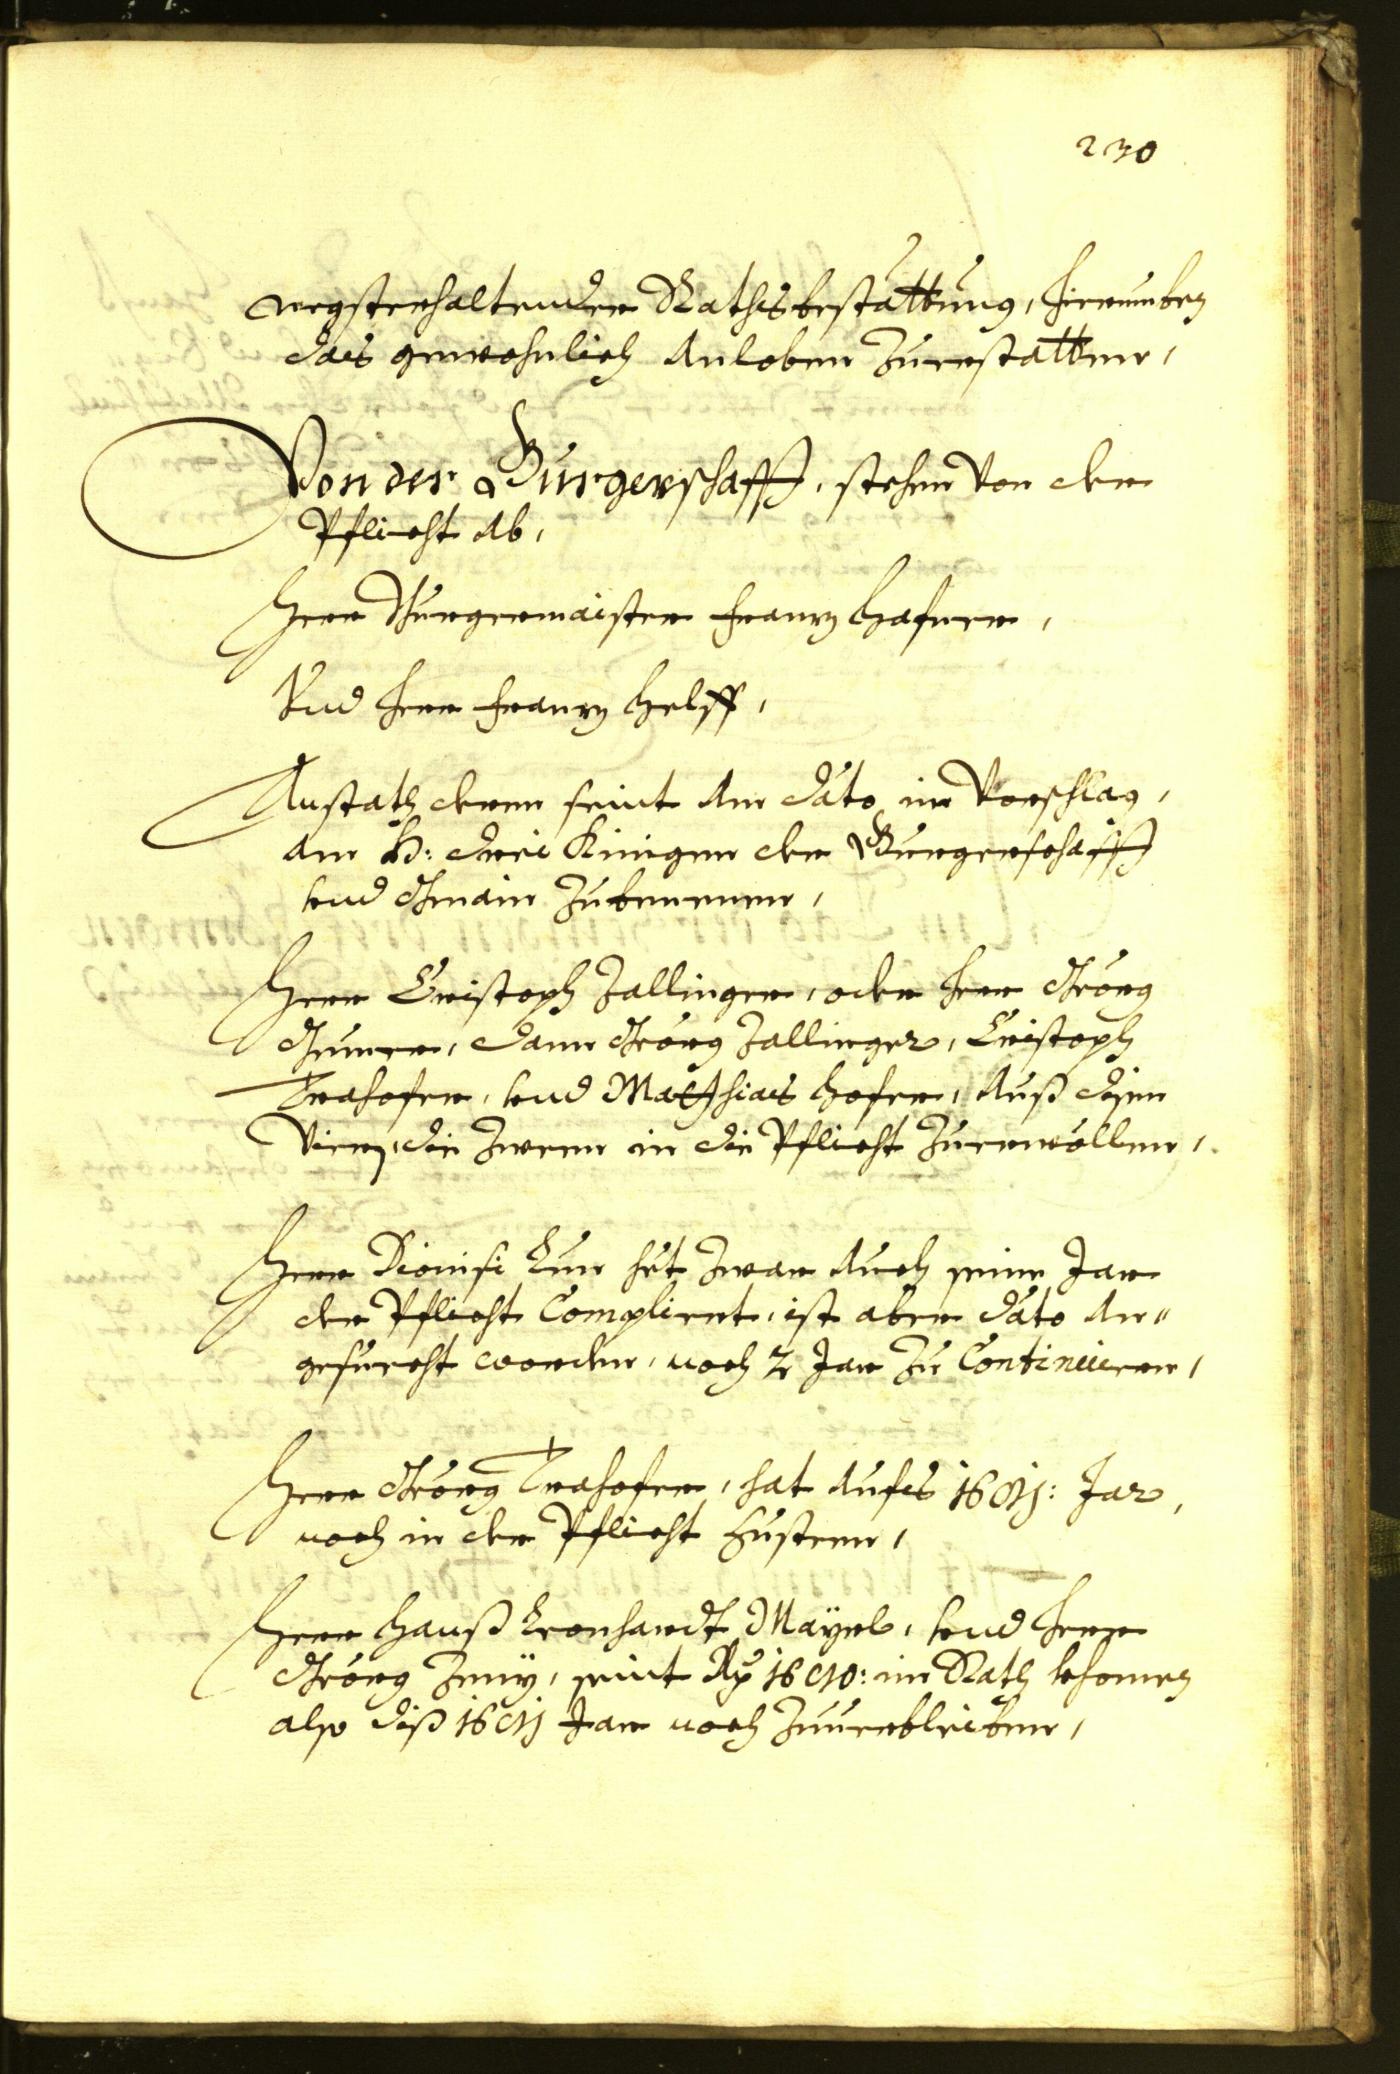 230
negsterhaltender Rathsbestattung, hierumben
das gewohnlich Anloben Zuerstatten,
Von der Burgerschafft, stehen Von der
Pflicht Ab,
Herr Burgermaister Franz Hafner,
Vnd Herr Franz Helff,
Anstath deren seint Am dato im Vorschlag,
Am H: drei Kinigen der Burgerschafft
vnd Gmain Zubenenen,
Herr Cristoph Zallinger, oder Herr Georg
dann Georg Zallinger, Cristoph
Trahofer, vnd Mathias Hofer, Auß disen
Viern, die Zween in die Pflicht Zuerwöllen,
Herr Dionisi Kun het Zwar Auch seine Jar
der Pflicht Compliert, ist aber dato An„
gesuecht worden, noch 2 Jar Zu Continuiern,
Herr Georg Trahofer, hat Aufs Jar,
noch in der Pflicht Zusteen,
Herr Hanß Leonhardt Mayrl, vnd Herr
Georg seint im Rath khomen
also diß Jar noch Zuuerbleiben,